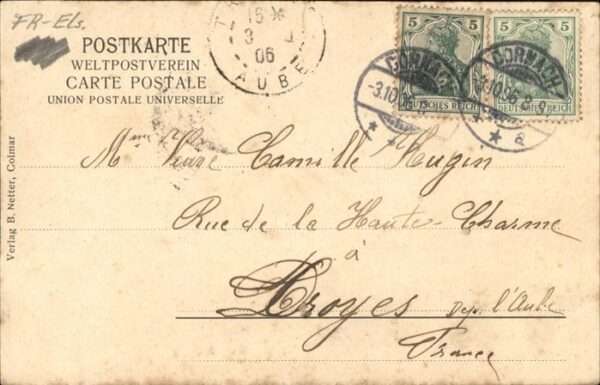 FR-Els.
POSTKARTE
WELTPOSTVEREIN
CARTE POSTALE
UNION POSTALE UNIVERSELLE
15
3
06
AUBE
5 5
5 5
DEUTSCHES REICH
DEUTSCHES REICH
DORNACH
-3.10.06
*a
DORNACH
-3.10.06. 8-9
* a
Mme Veuve Camille Hugin
Rue de la Haute-Charme
à
Troyes Dep. l'Aube
France
Verlag B. Netter, Colmar